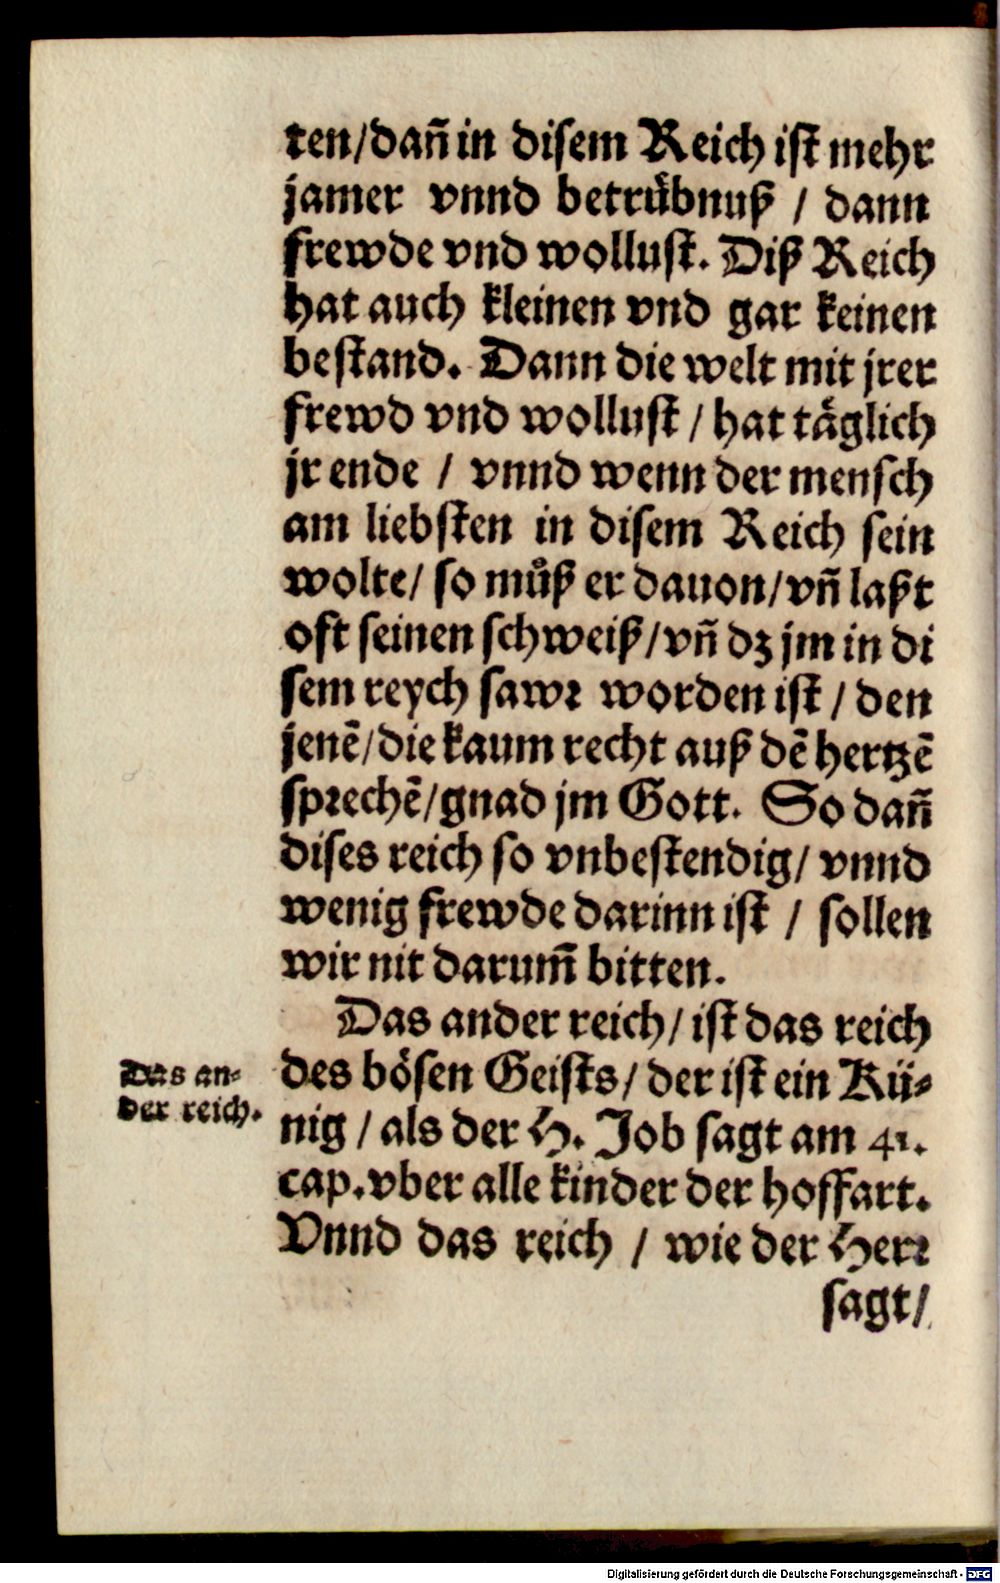 ten/dañ in disem Reich ist mehr
jamer vnnd betruͤbnuß / dann
frewde vnd wollust. Diß Reich
hat auch kleinen vnd gar keinen
bestand. Dann die welt mit jrer
frewd vnd wollust / hat taͤglich
jr ende / vnnd wenn der mensch
am liebsten in disem Reich sein
wolte/ so muͦß er dauon/vñ laßt
oft seinen schweiß/vñ dz jm in di
sem reych sawr worden ist / den
jenē/die kaum recht auß dē hertzē
sprechē/gnad jm Gott. So dañ
dises reich so vnbestendig/ vnnd
wenig frewde darinn ist / sollen
wir nit darum̄ bitten.
Das ander reich/ ist das reich
Das an-
der reich.
des bösen Geists/ der ist ein Kü-
nig / als der H. Job sagt am 41.
cap.vber alle kinder der hoffart.
Vnnd das reich / wie der Herr
sagt/
Digitalisierung gefördert durch die Deutsche Forschungsgemeinschaft - DFG